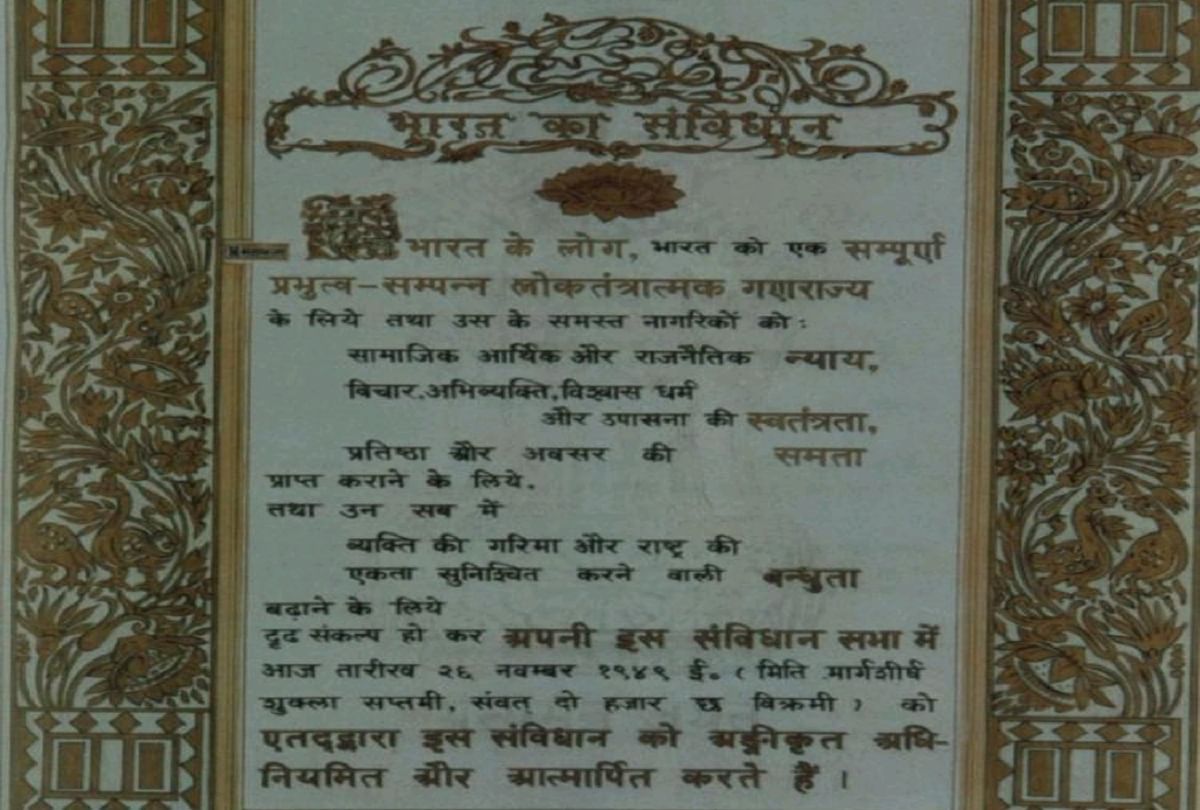 भारत का संविधान
भारत के लोग, भारत को एक सम्पूर्ण
प्रभुत्व-सम्पन्न लोकतंत्रात्मक गणराज्य
के लिये तथा उस के समस्त नागरिकों को:
सामाजिक आर्थिक और राजनैतिक न्याय,
विचार,अभिव्यक्ति,विश्वास धर्म
और उपासना की स्वतंत्रता,
प्रतिष्ठा और अवसर की समता
प्राप्त कराने के लिये,
तथा उन सब में
व्यक्ति की गरिमा और राष्ट्र की
एकता सुनिश्चित करने वाली बन्धुता
बढ़ाने के लिये
दृढ़ संकल्प हो कर अपनी इस संविधान सभा में
आज तारीख २६ नवम्बर १९४९ ई॰ (मिति मार्गशीर्ष
शुक्ला सप्तमी, संवत् दो हजार छ विक्रमी) को
एतद्द्वारा इस संविधान को अङ्गीकृत अधि-
नियमित और आत्मार्पित करते हैं।